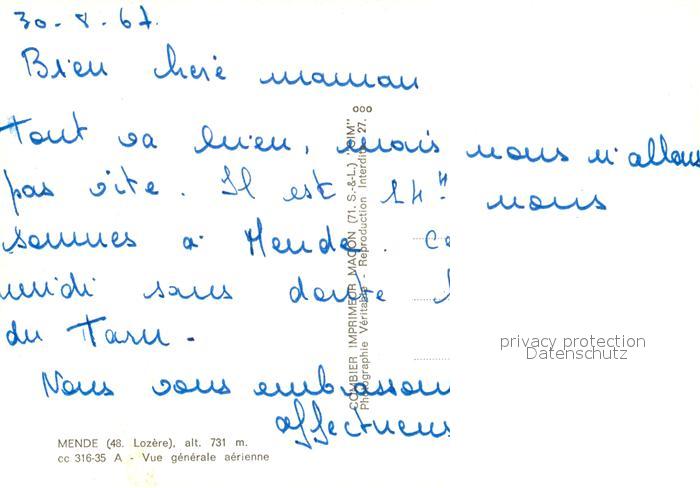 30-8-67.
Bien cheré maman
Tout va bien, mais nous n'allons
pas vite. Il est 14H. nous
sommes à Mende.
midi sans doute
du Tarn.
Nous vous embrasson
affectueus
privacy protection
Datenschutz
MENDE (48. Lozère), alt. 731 m.
cc 316-35 A - Vue générale aérienne
COMBIER IMPRIMEUR MACON (71. S.-&-L.) "CIM"
Photographie Véritable - Reproduction Interdite 27.